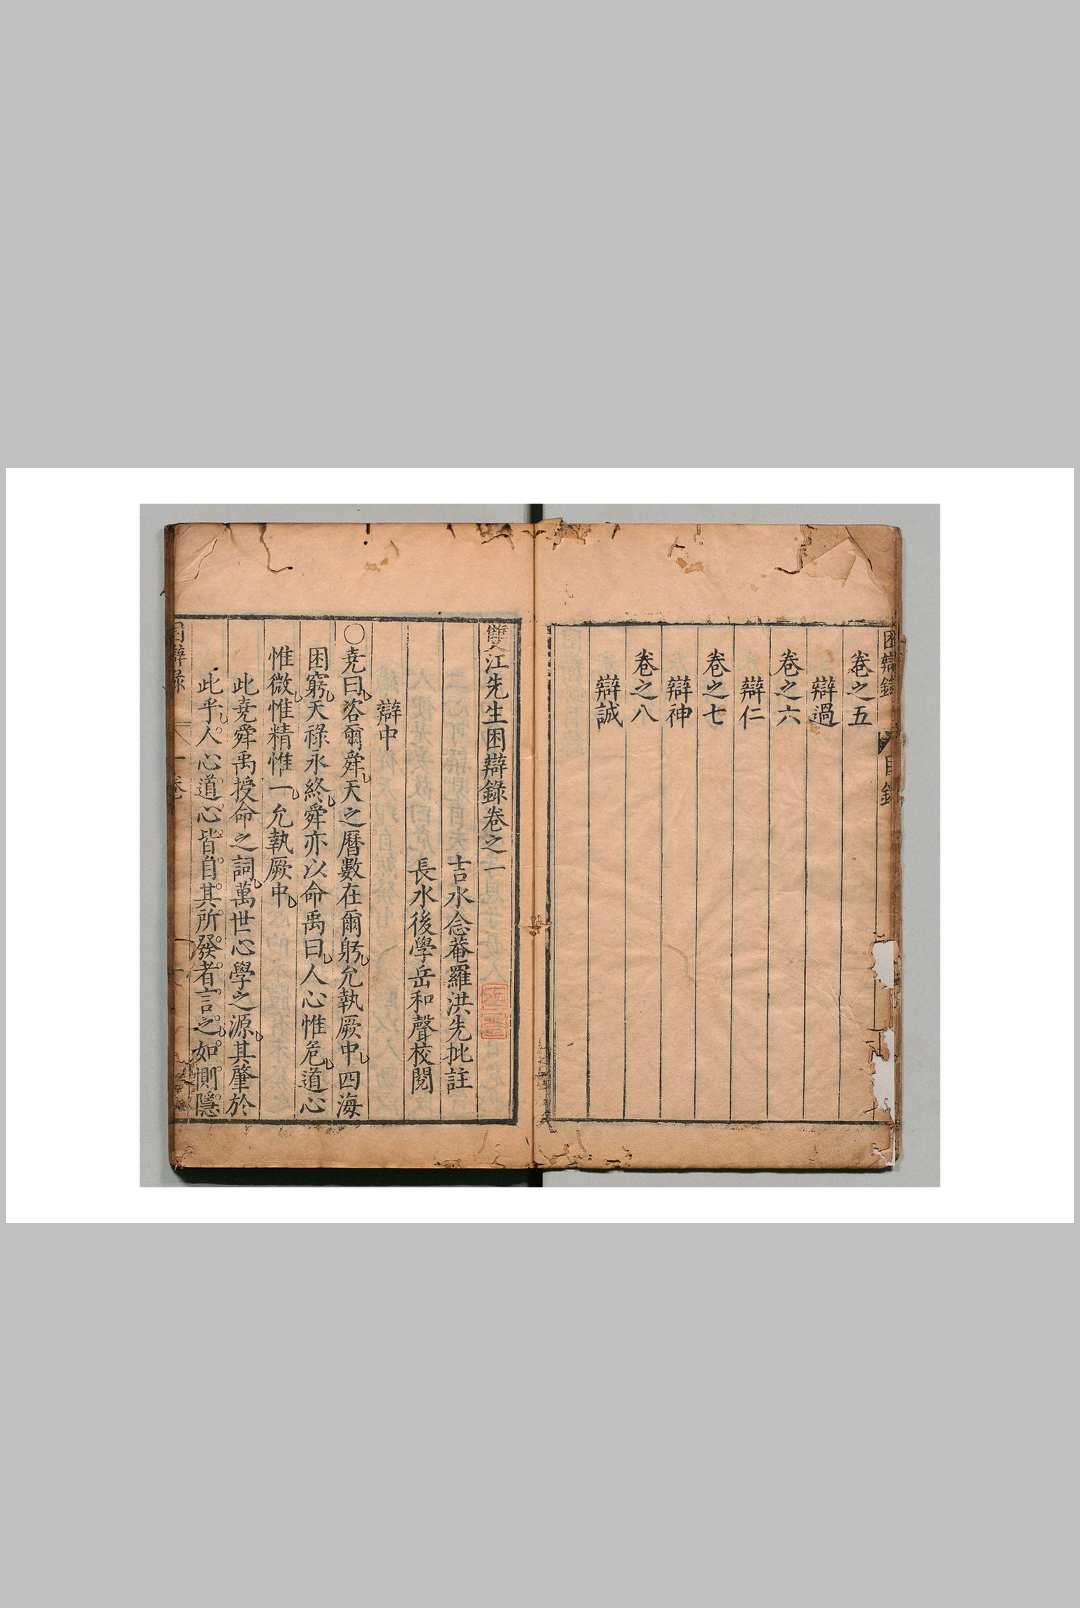 困辯錄
目錄
卷之五
辯過
卷之六
辯仁
卷之七
辯神
卷之八
辯誠
雙江先生困辯錄卷之一
吉水念菴羅洪先批註
長水後學岳和聲校閱
辯中
○堯曰咨爾舜天之曆數在爾躬允執厥中四海
困窮天祿永終舜亦以命禹曰人心惟危道心
惟微惟精惟一允執厥中
此堯舜禹授命之詞萬世心學之源其肇於
此乎人心道心皆自其所發者言之如惻隱
困辯錄
一卷